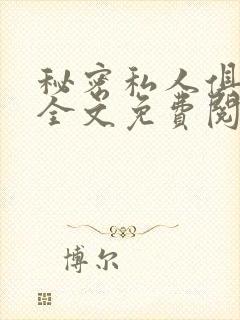 秘密私人俱
全文免费阅
博尔